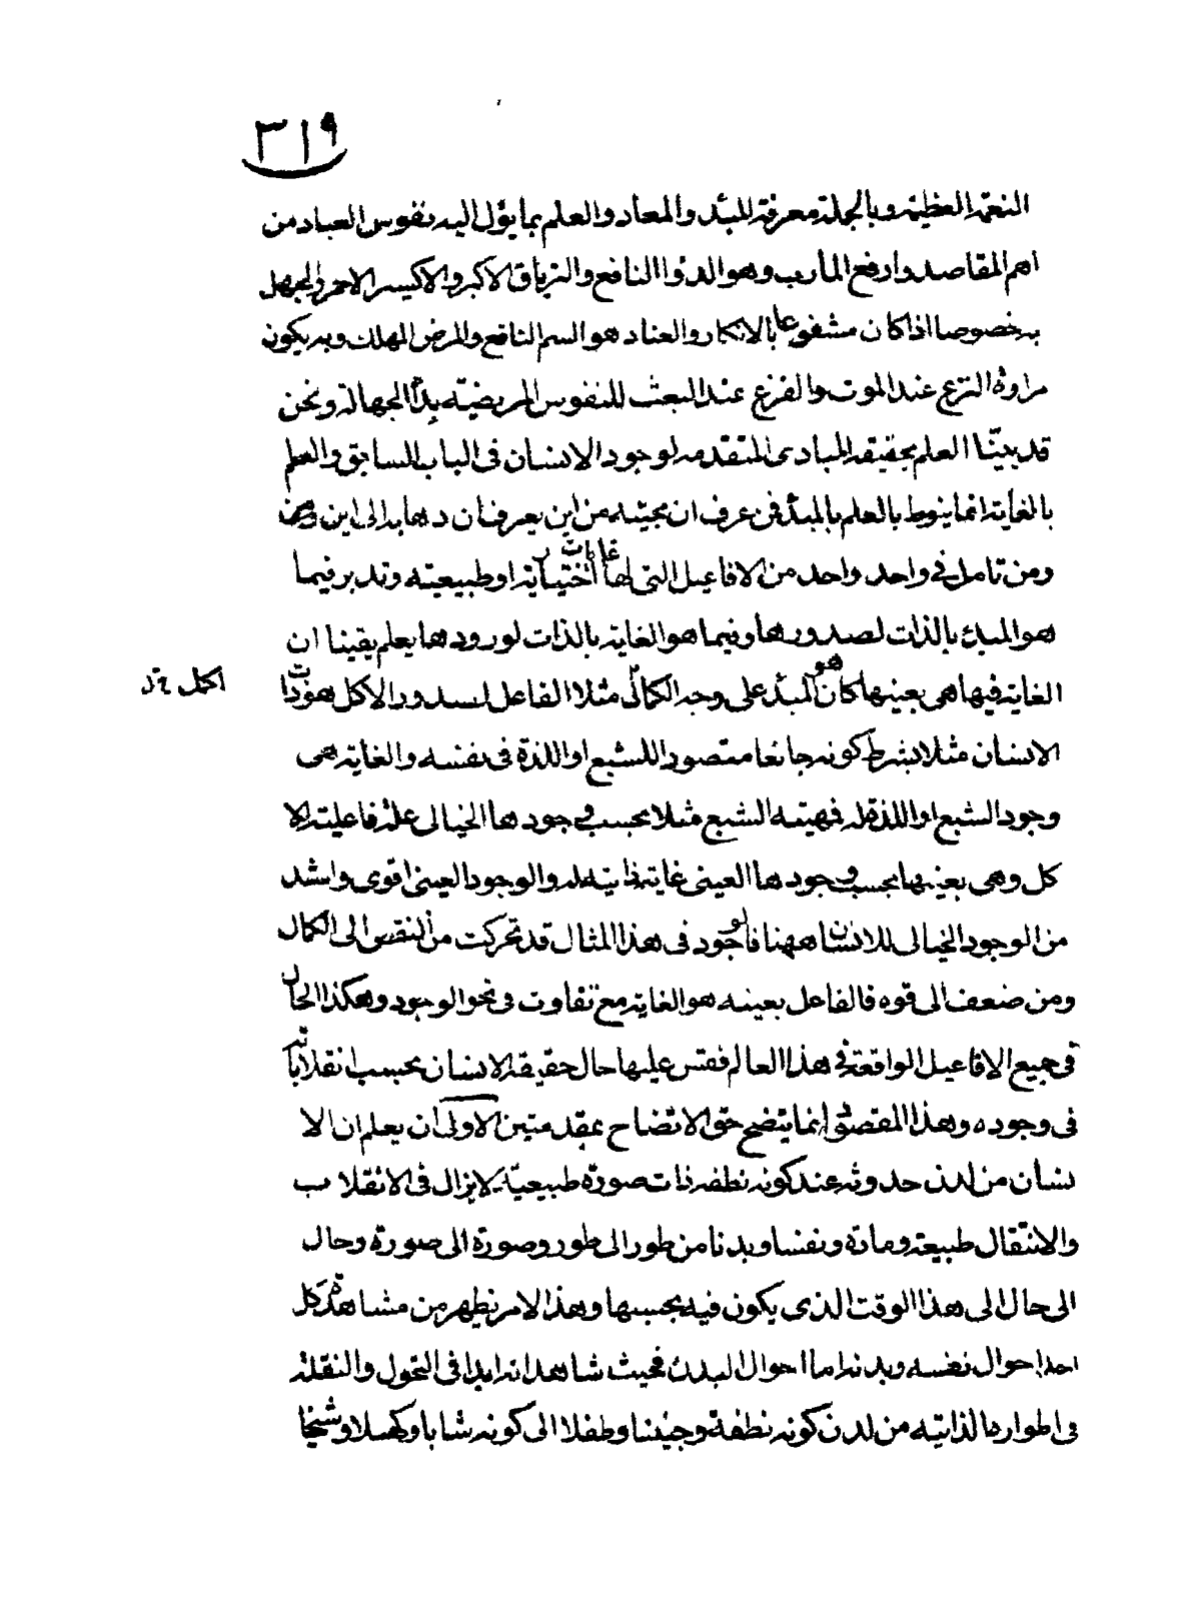 ٣١٩
النعمة العظيمة وبالجملة معرفة المبدء والمعاد والعلم بما يؤل اليه نفوس العباد من
اهم المقاصد وارفع المأرب وهو الدوا النافع والترياق الاكبر والاكسير الاحمر والجهل
به خصوصا اذا كان مشفوعا بالانكار والعناد هو السم الناقع والمرض المهلك وبه يكون
مرارة النزع عند الموت والفزع عند البعث للنفوس المريضة بداء الجهالة ونحن
قد بينّا العلم بحقيقة المبادى المتقدمه لوجود الانسان فى الباب السابق والعلم
بالغاية انما ينوط بالعلم بالمبدء فمن عرف ان مجيئه من اين يعرف ان ذهابه الى اين ومن
ومن تامل فى واحد واحد من الافاعيل التى لها غايات اختيارية او طبيعية وتدبر فيما
هو المبدء بالذات لصدورها وفيما هو الغاية بالذات لورودها يعلم يقينا ان
الغاية فيها هى بعينها كان هو المبدء على وجه الكمال مثلا الفاعل لصدور الاكل هو ذات
اكمل خ‌ل
الانسان مثلا بشرط كونه جائعا متصورا للشبع او اللذة فى نفسه والغاية هى
وجود الشبع او اللذة له فمهية الشبع مثلا بحسب وجودها الخيالى علة فاعلية للا
كل وهى بعينها بحسب وجودها العينى غاية ذاتية له والوجود العينى اقوى واشد
من الوجود الخيالى للانسان ههنا فالوجود فى هذا المثال قد تحركت من النقص الى الكمال
ومن ضعف الى قوه فالفاعل بعينه هو الغاية مع تفاوت فى نحو الوجود وهكذا الحال
فى جميع الافاعيل الواقعة فى هذا العالم فقس عليها حال حقيقة الانسان بحسب انقلاباته
فى وجوده وهذا المقصد انما يتضح حق الاتضاح بمقدمتين الاولى ان يعلم ان الا
نسان من لدن حدوثه عند كونه نطفه ذات صورة طبيعية لايزال فى الانقلاب
والانتقال طبيعة ومادة ونفسا وبدنا من طور الى طور وصورة الى صورة وحال
الى حال الى هذا الوقت الذى يكون فيه بحسبها وهذا الامر يظهر من مشاهدة كل
احد احوال نفسه وبدنه اما احوال البدن فحيث شاهد انه ابدا فى التحول والنقلة
فى اطواره الذاتية من لدن كونه نطفة وجنينا وطفلا الى كونه شابا وكهلا وشيخا